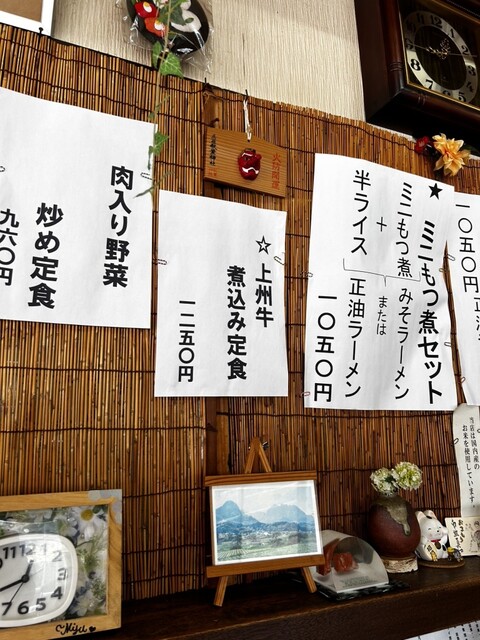 ★ミニもつ煮セット
ミニもつ煮
みそラーメン
＋
または
半ライス
正油ラーメン
一〇五〇円
☆上州牛
煮込み定食
一二五〇円
肉入り野菜
炒め定食
九六〇円
一〇五〇円
当店は国内産の
お米を使用しています
12
1
2
3
4
5
6
7
8
11
Miju